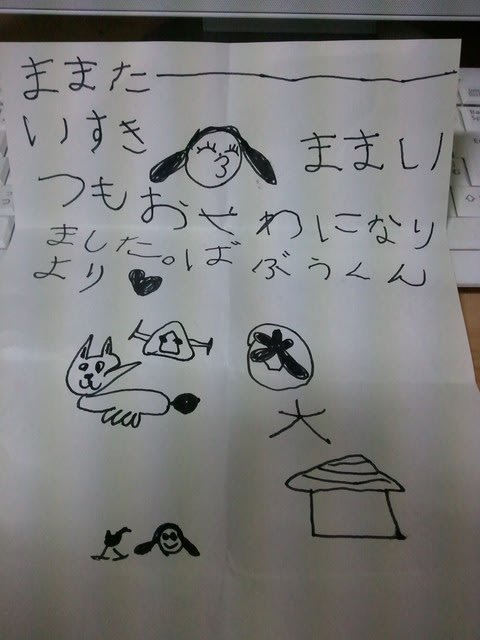 ままた――
いすき
ままい
つもおせわになり
ました。ばぶうくん
より
大